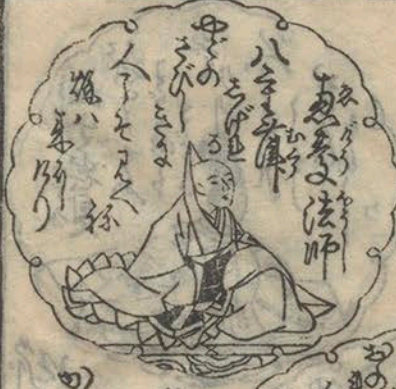 恵慶法師
八重葎
しげれ
る
やどの
さびしきに
人こそみへね
穐ハ
来にけり